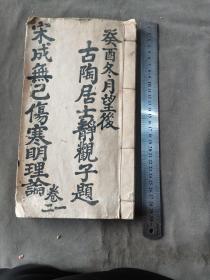 癸酉冬月望後
古陶居士靜觀子題
宋成無己傷寒明理論
卷一
二